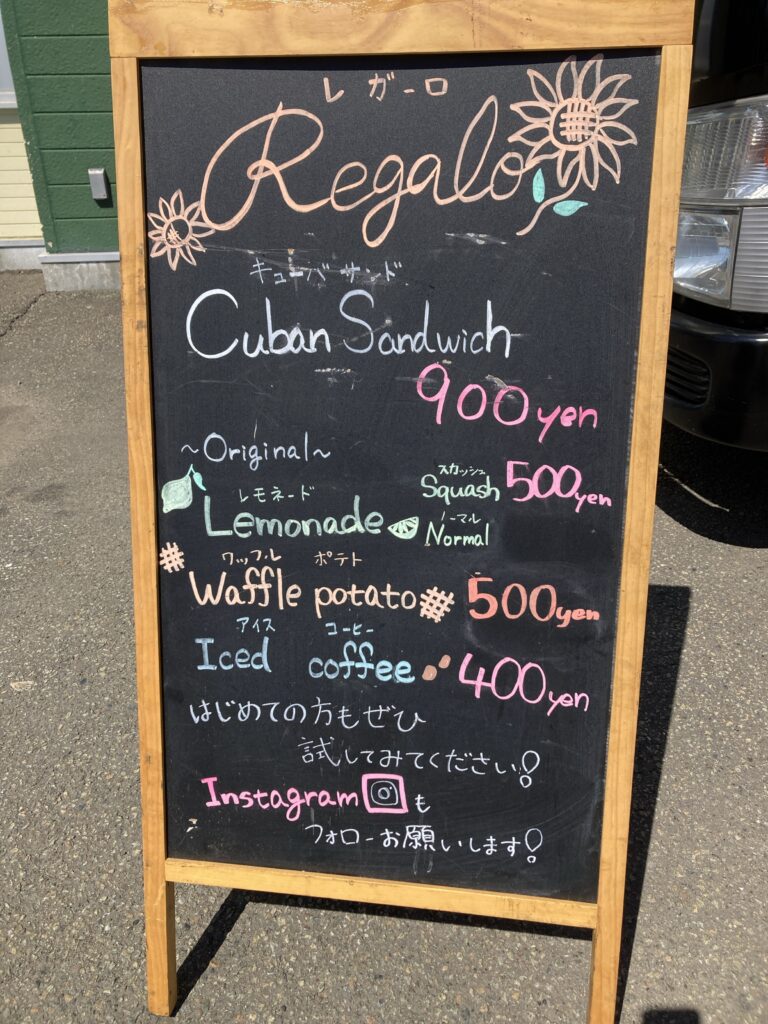 レガーロ
Regalo
キューバサンド
Cuban Sandwich
900yen
~Original~
スカッシュ
Squash 500yen
レモネード
Lemonade
ノーマル
Normal
ワッフル ポテト
Waffle potato 500yen
アイス コーヒー
Iced coffee 400yen
はじめての方もぜひ
試してみてください!
Instagram も
フォローお願いします!